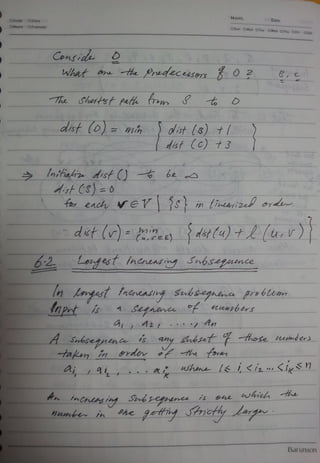 Consider D
What are the Predecessors of D? B, C
The Shortest path from S to D
dist (D) = min { dist (B) + 1
dist (C) + 3 }
⇒ Initialize dist () to be ∞
dist (S) = 0
for each v ∈ V \ {S} in linearized order
dist (v) = min (u,v ∈ E) { dist(u) + l (u,v) }
6-2 Longest Increasing Subsequence
In Longest Increasing Subsequence problem
Input is a sequence of numbers
a1, a2, ...., an
A subsequence is any subset of those numbers
taken in order of the form
ai1, ai2, ... aik where 1 ≤ i1 < i2 ... < ik ≤ n
An increasing Subsequence is one which the
number in one getting Strictly Larger.
Barunson